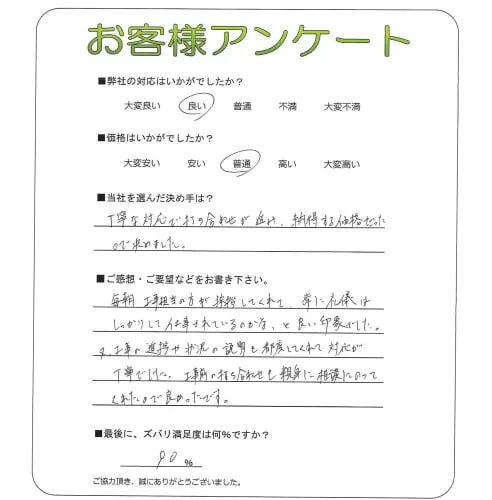 お客様アンケート
■弊社の対応はいかがでしたか?
大変良い 良い 普通 不満 大変不満
■価格はいかがでしたか?
大変安い 安い 普通 高い 大変高い
■当社を選んだ決め手は?
丁寧な対応で打ち合わせが 納得する価格だった
ので決めました。
■ご感想・ご要望などをお書き下さい。
毎朝 工事担当の方が挨拶してくれて、常に礼儀は
しっかりして仕事されているのかな、と良い印象でした。
又、工事の進捗や状況の説明も都度してくれて対応が
丁寧でした。工事前の打ち合わせも親身に相談にのって
くれたので良かったです。
■最後に、ズバリ満足度は何%ですか?
90 %
ご協力頂き、誠にありがとうございました。